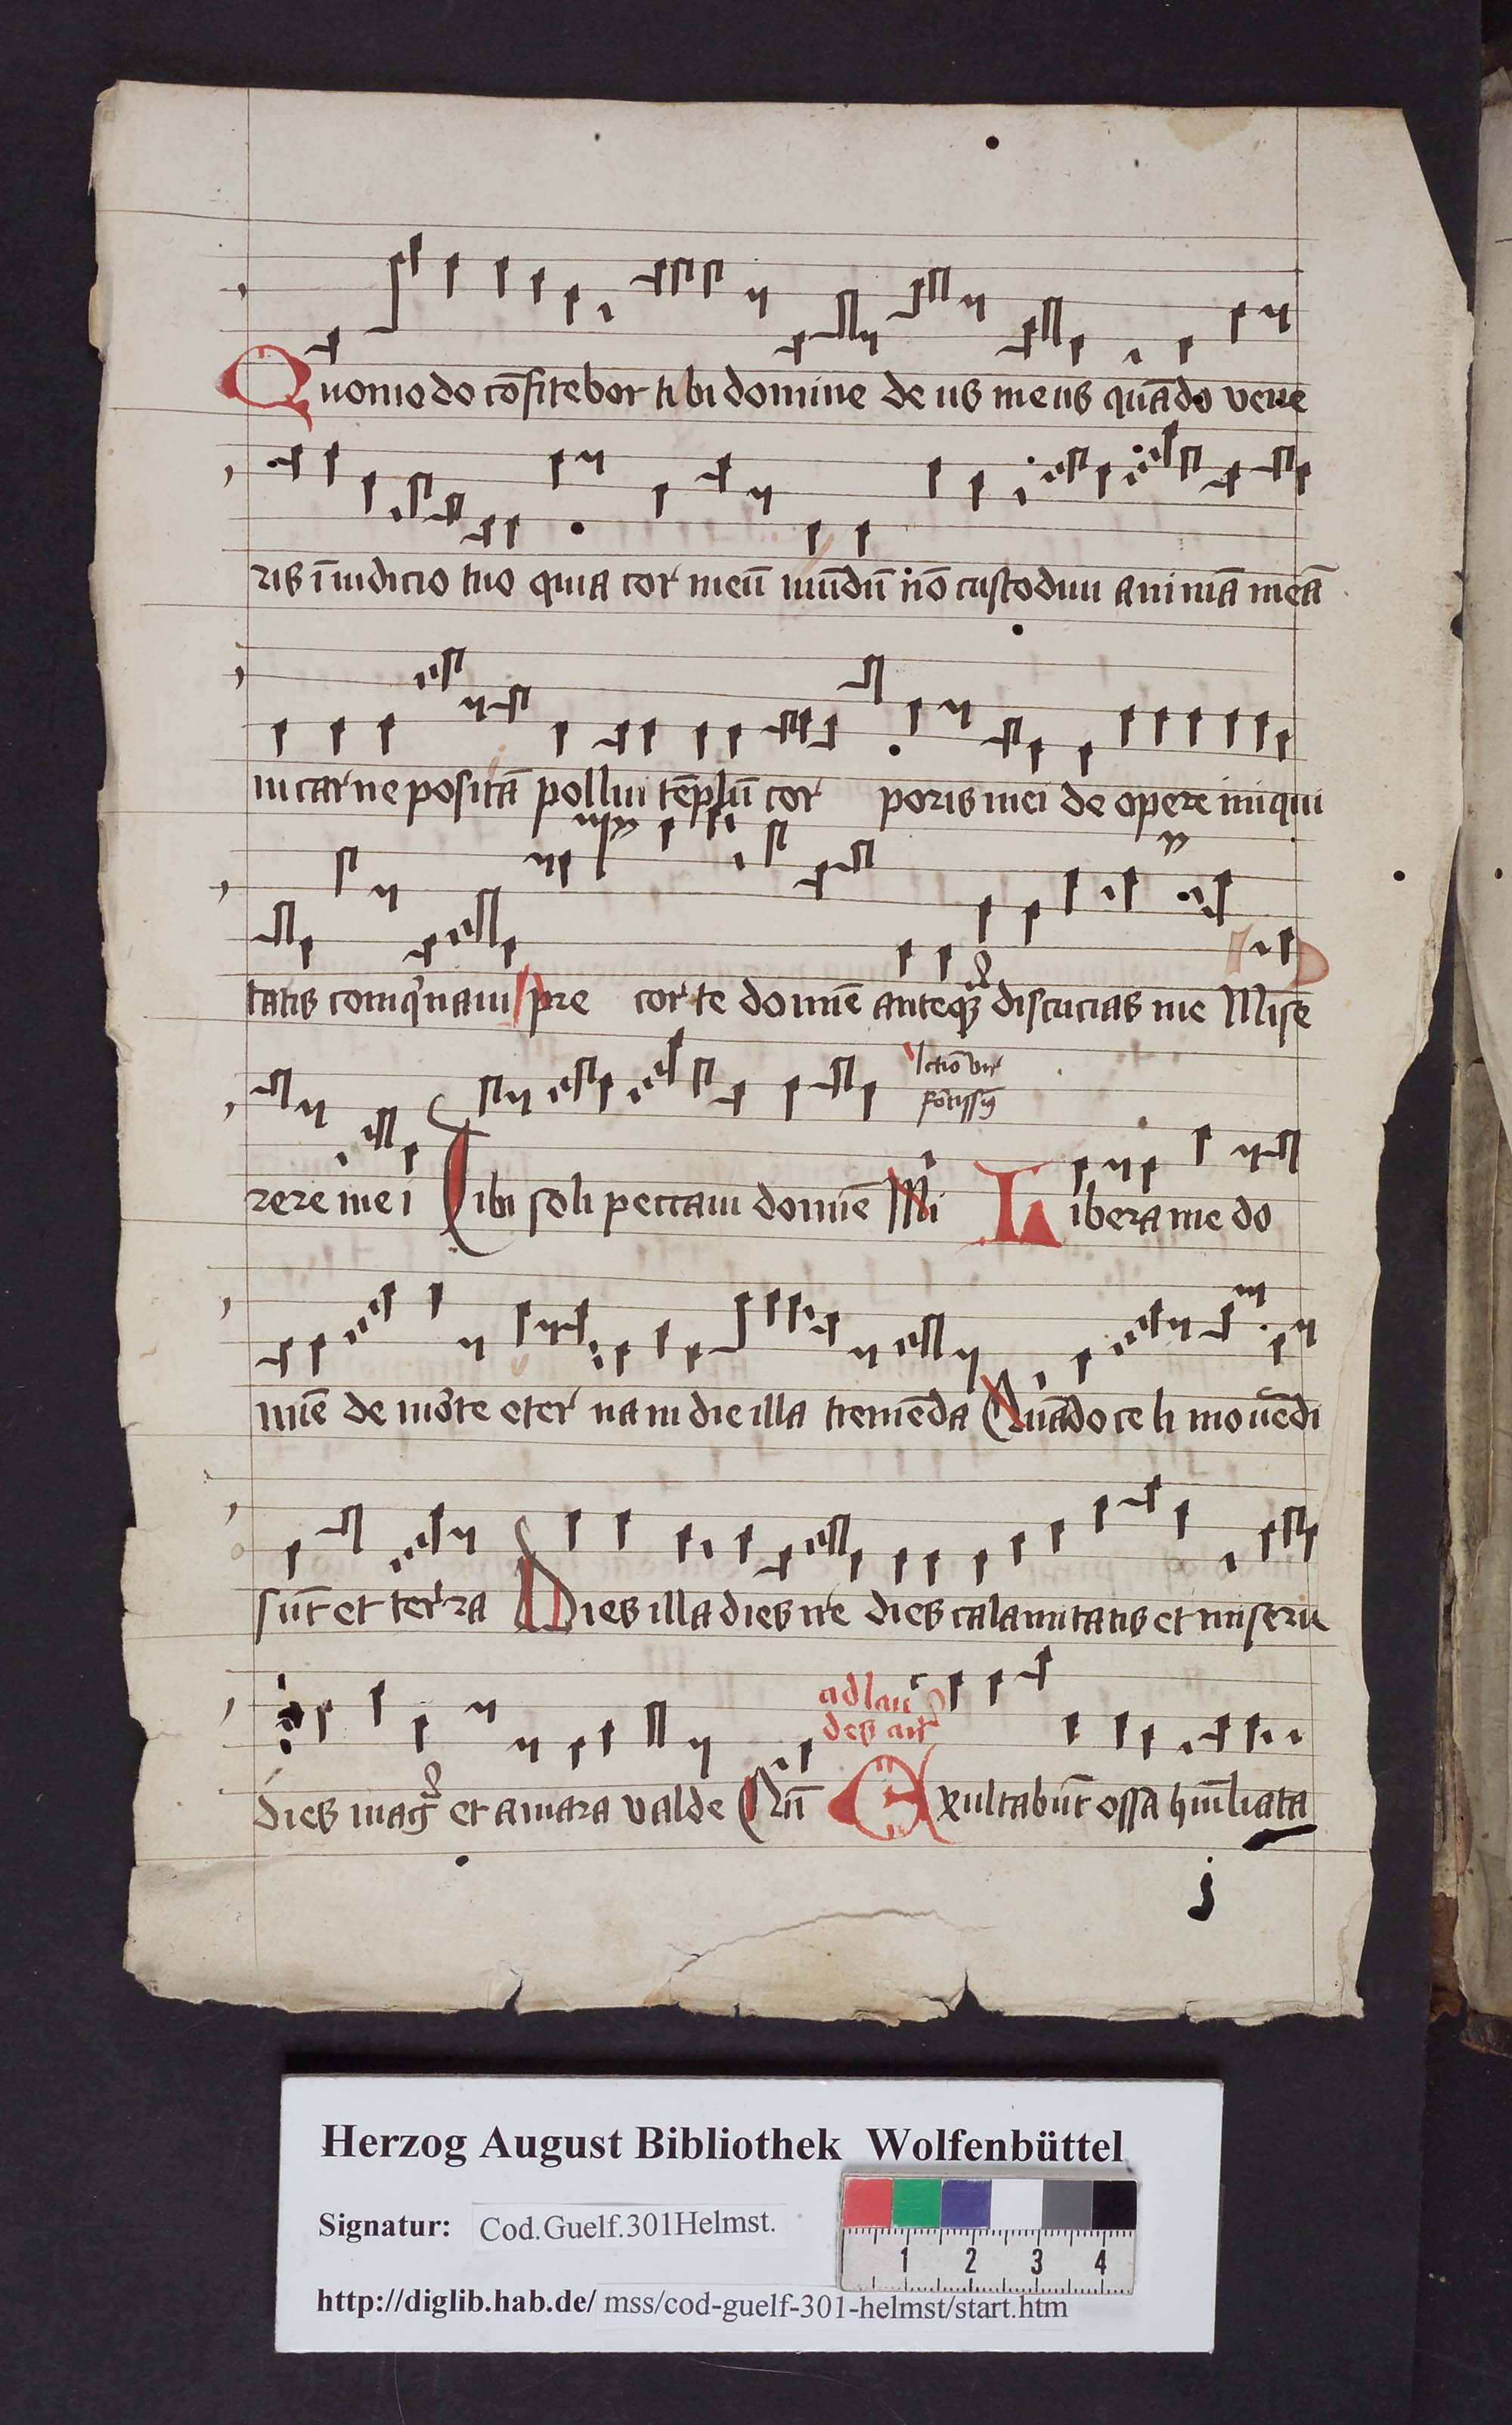 Quomodo cōfitebor tibi domine deus meus quādo vene
ris ī iudicio tuo quia cor meū mūdū nō custodiui animā meā
in carne positā pollui tēplū cor poris mei de opere iniqui
tatis coinq'naui pre cor te domīe anteq̄ discucias me Mise
rere mei Tibi soli peccaui domīe Mi Libera me do
mīe de morte eterna in die illa tremēda Quādo celi mouēdi
sūt et terra Dies illa dies ire dies calamitatis et miserie
ad lau
des an̄
dies mag et amara valde Quā Exultabūt ossa humīliata
Herzog August Bibliothek Wolfenbüttel
Signatur: Cod.Guelf.301Helmst.
1 2 3 4
http://diglib.hab.de/ mss/cod-guelf-301-helmst/start.htm